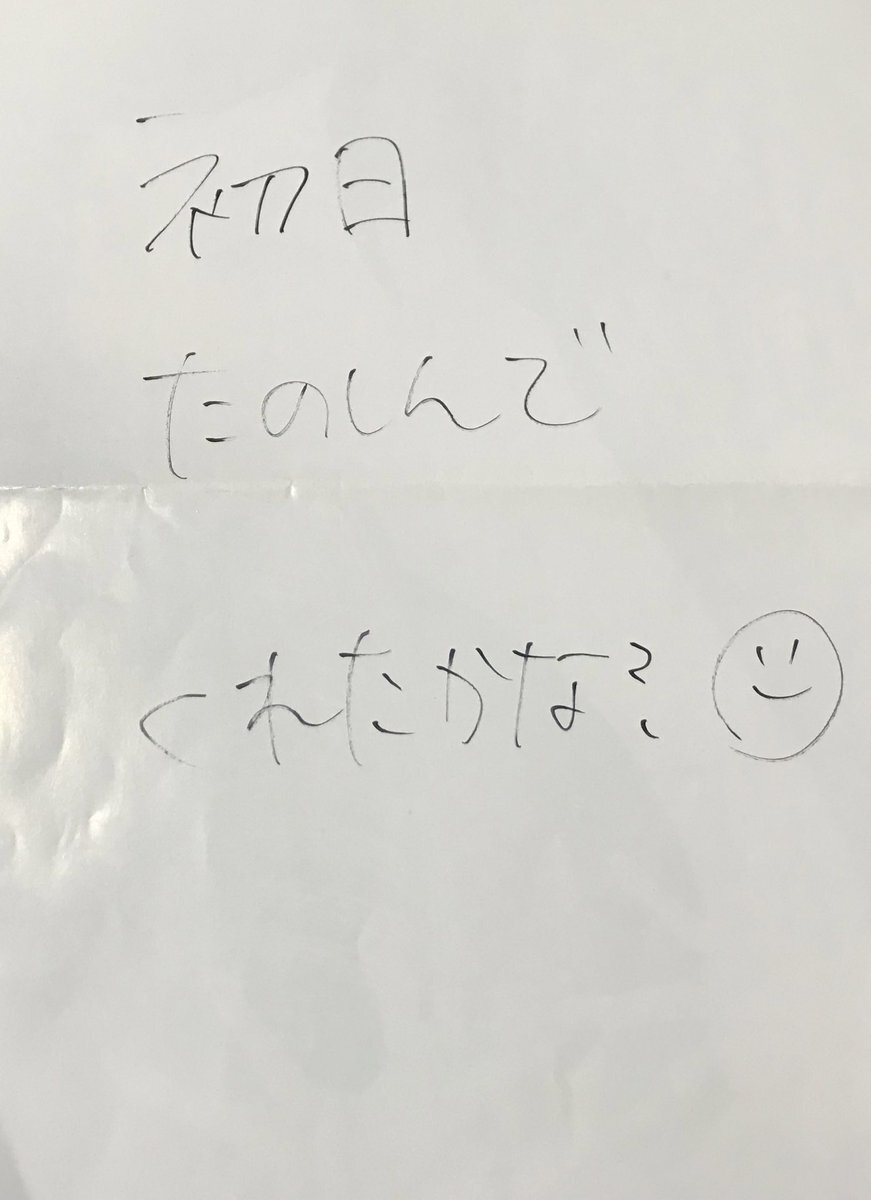 初日
たのしんで
くれたかな?